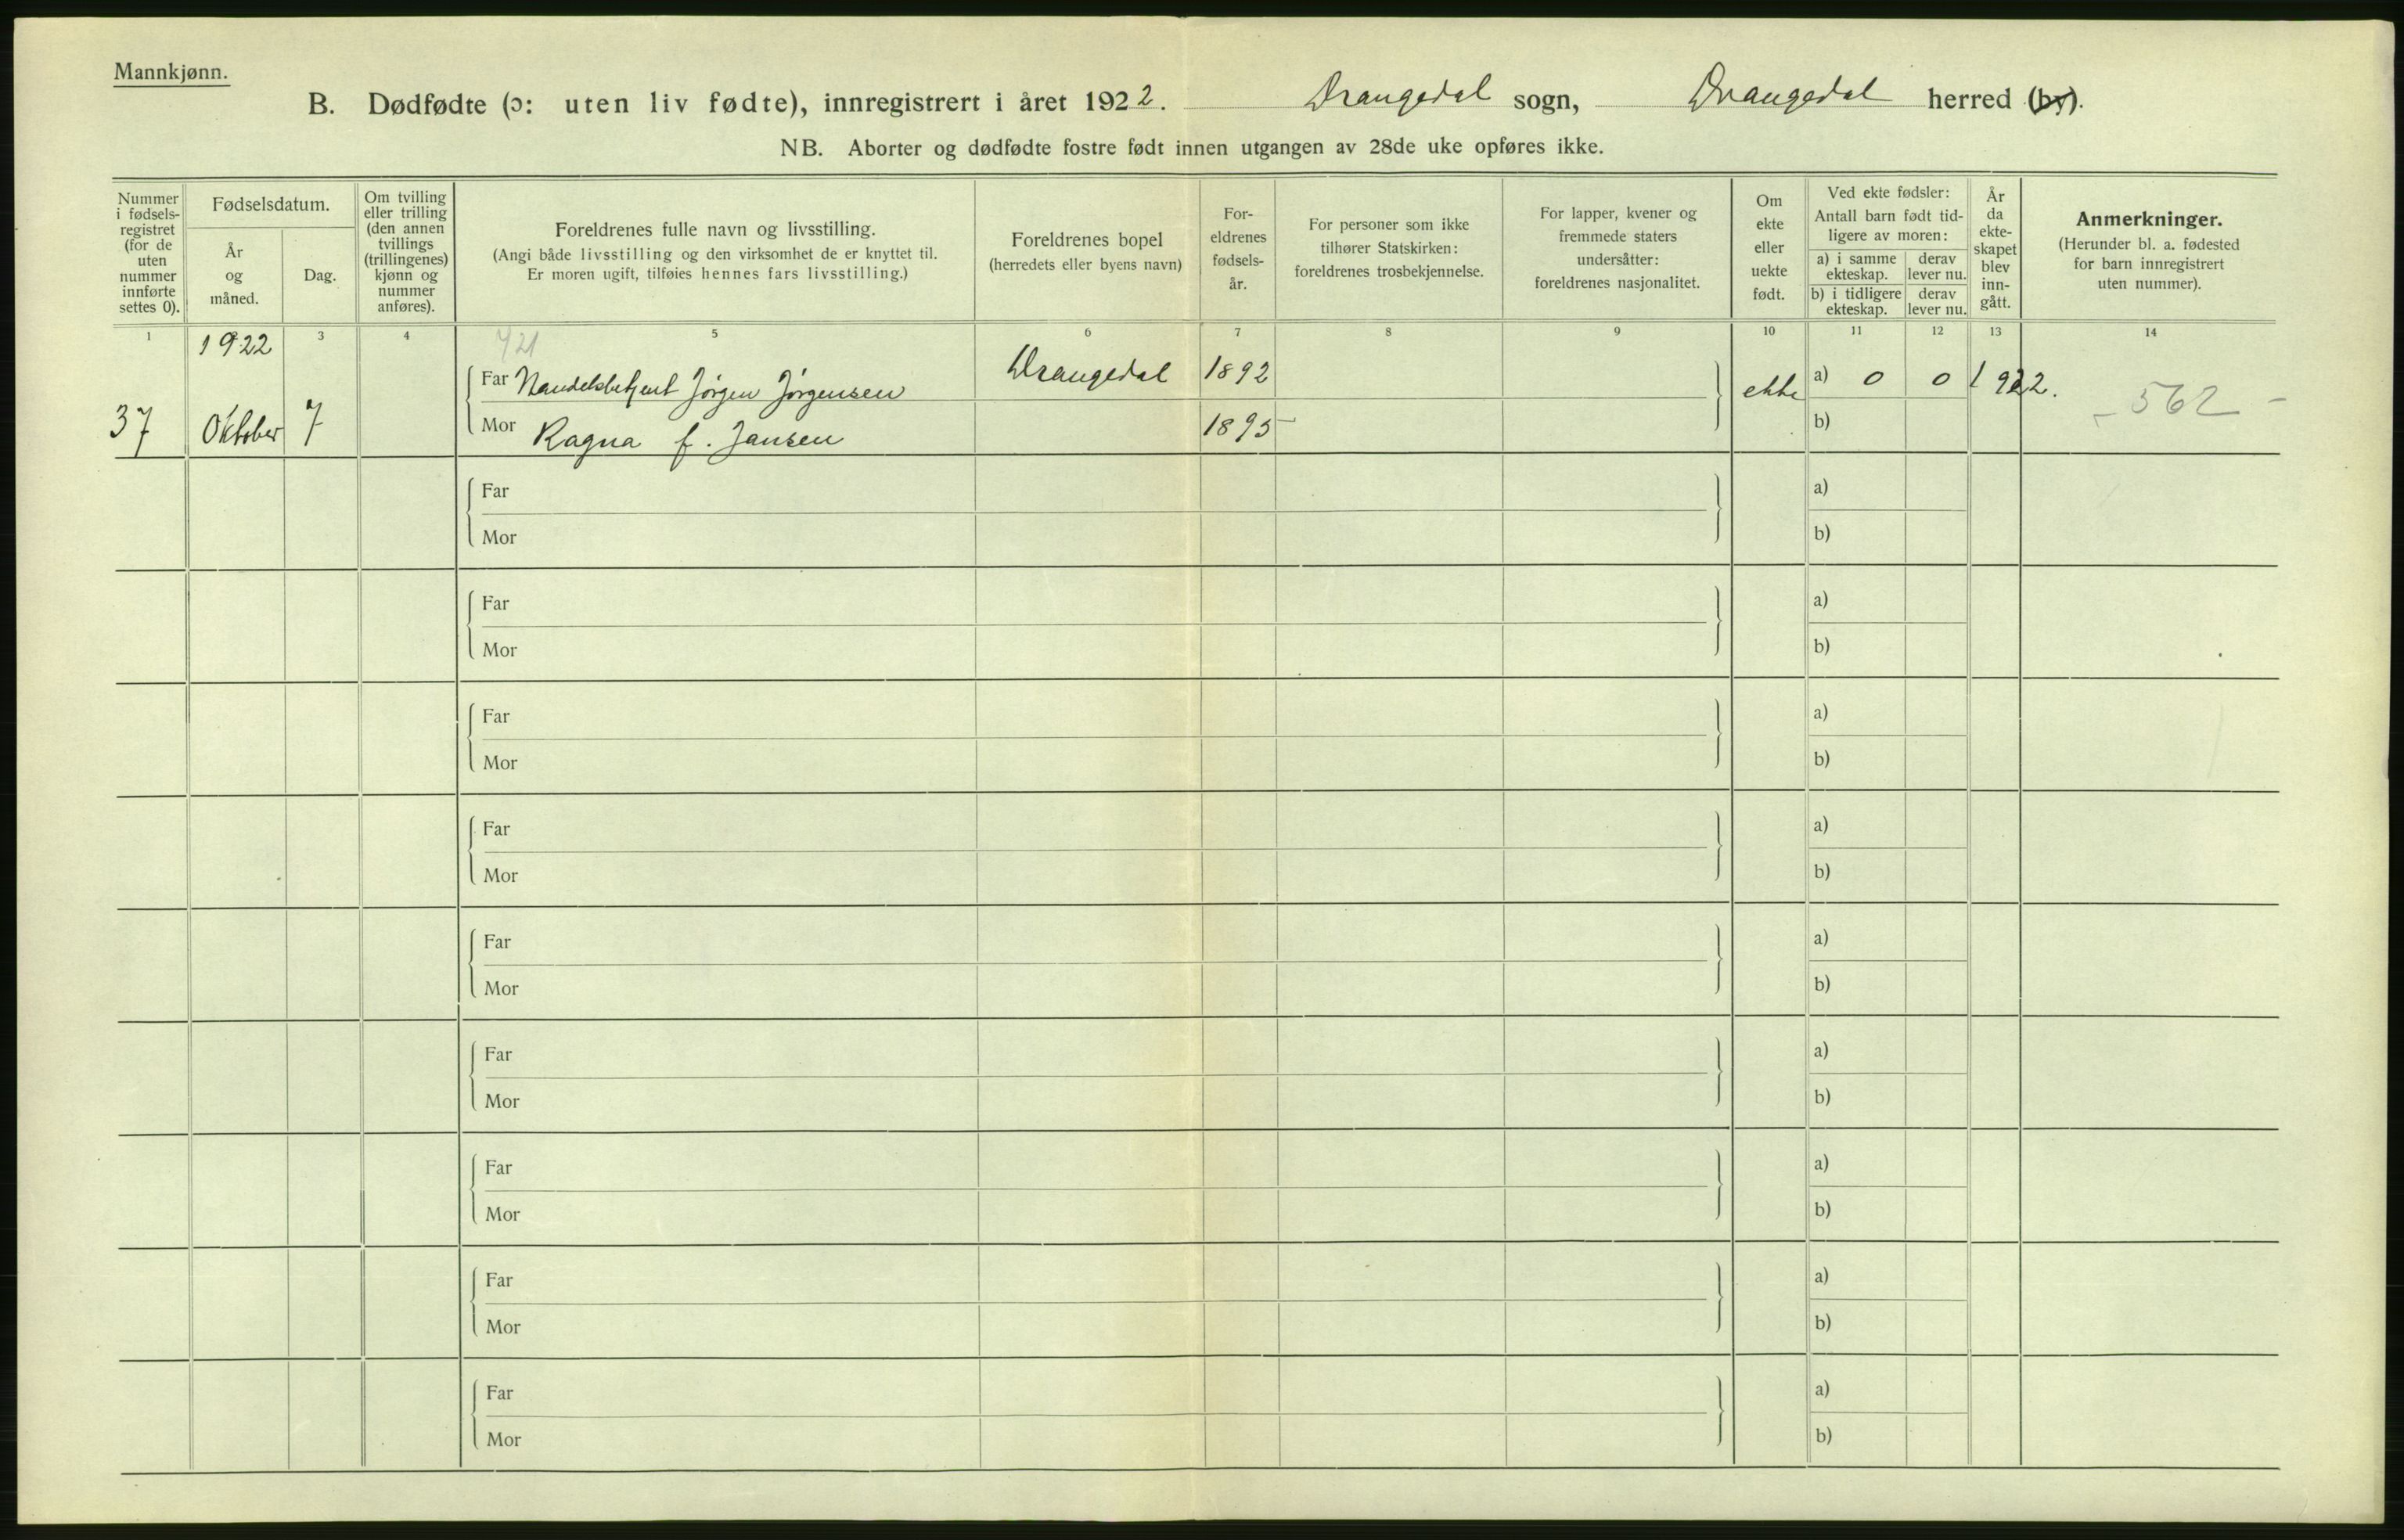 Mannkjønn.
B. Dødfødte (ɔ: uten liv fødte), innregistrert i året 1922. Drangedal sogn, Drangedal herred (by).
NB. Aborter og dødfødte fostre født innen utgangen av 28de uke opføres ikke.
Nummer i fødsels-registret (for de uten nummer innførte settes 0).
Fødselsdatum.
År og måned.
Dag.
Om tvilling eller trilling (den annen tvillings (trillingenes) kjønn og nummer anføres).
Foreldrenes fulle navn og livsstilling.
(Angi både livsstilling og den virksomhet de er knyttet til.
Er moren ugift, tilføies hennes fars livsstilling.)
Foreldrenes bopel
(herredets eller byens navn)
For-eldrenes fødsels-år.
For personer som ikke tilhører Statskirken: foreldrenes trosbekjennelse.
For lapper, kvener og fremmede staters undersåtter: foreldrenes nasjonalitet.
Om ekte eller uekte født.
Ved ekte fødsler:
Antall barn født tid-ligere av moren:
a) i samme ekteskap.
derav lever nu.
b) i tidligere ekteskap.
derav lever nu.
År da ekte-skapet blev inn-gått.
Anmerkninger.
(Herunder bl. a. fødested for barn innregistrert uten nummer).
1 3 4 5 6 7 8 9 10 11 12 13 14
1922
421
Far Handelsbetjent Jørgen Jørgensen Drangedal 1892 ekte a) 0 0 1922.
37 Oktober 7
Mor Ragna f. Jansen 1895 b)
- 562 -
Far a)
Mor b)
Far a)
Mor b)
Far a)
Mor b)
Far a)
Mor b)
Far a)
Mor b)
Far a)
Mor b)
Far a)
Mor b)
Far a)
Mor b)
Far a)
Mor b)